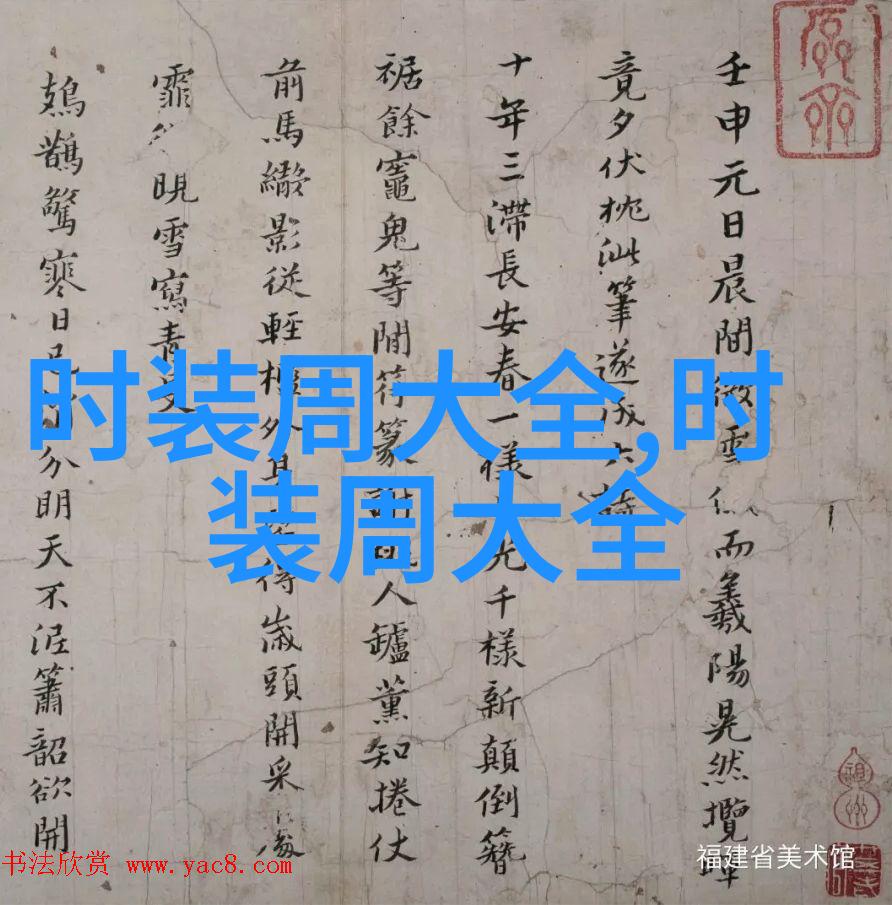 壬申元日晨間微雲而羲陽晃然攬
竟夕伏枕泚筆遂成六詩
十年三滯長安春一樣光千樣新顛倒簪
裾餘竈鬼等閒符篆人鑪薰知捲仗
前馬繖影從輕外待歲頭開采
霏晛雪寫青旻
鳷鵲驚寒日分明天不簫韶欲開
时装周大全,时
装周大全
书法欣赏 www.yac8.com
福建省美术馆